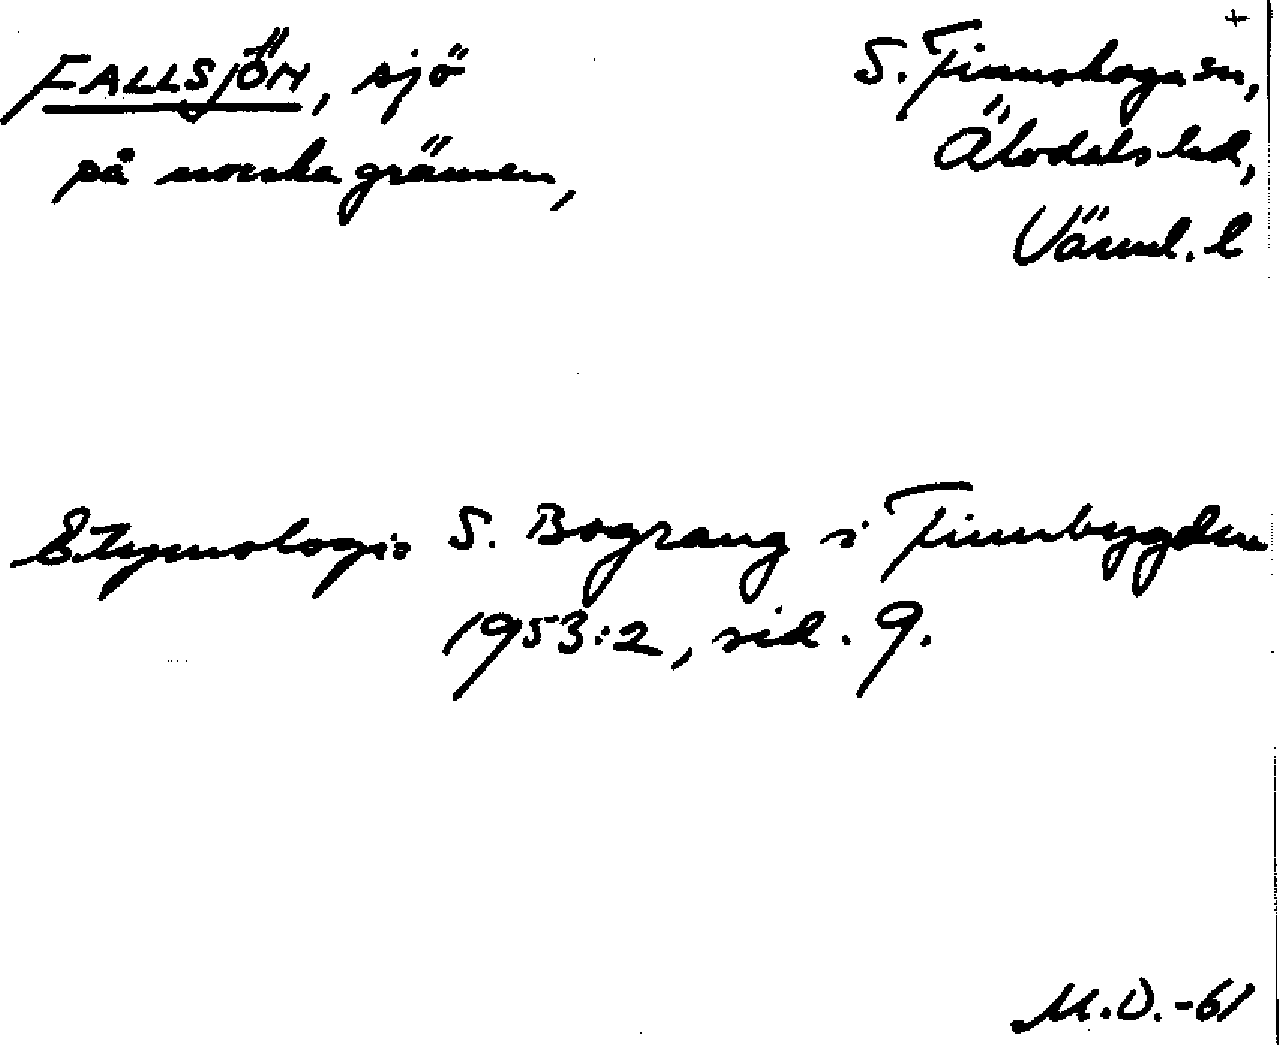 FALLSJÖN, sjö
på norska gränsen,
+
S. Finnskoga sn,
Älvdals hd,
Värml. l
Etymologi: S. Bograng i Finnbygden
1953:2, sid. 9.
M.O. -61